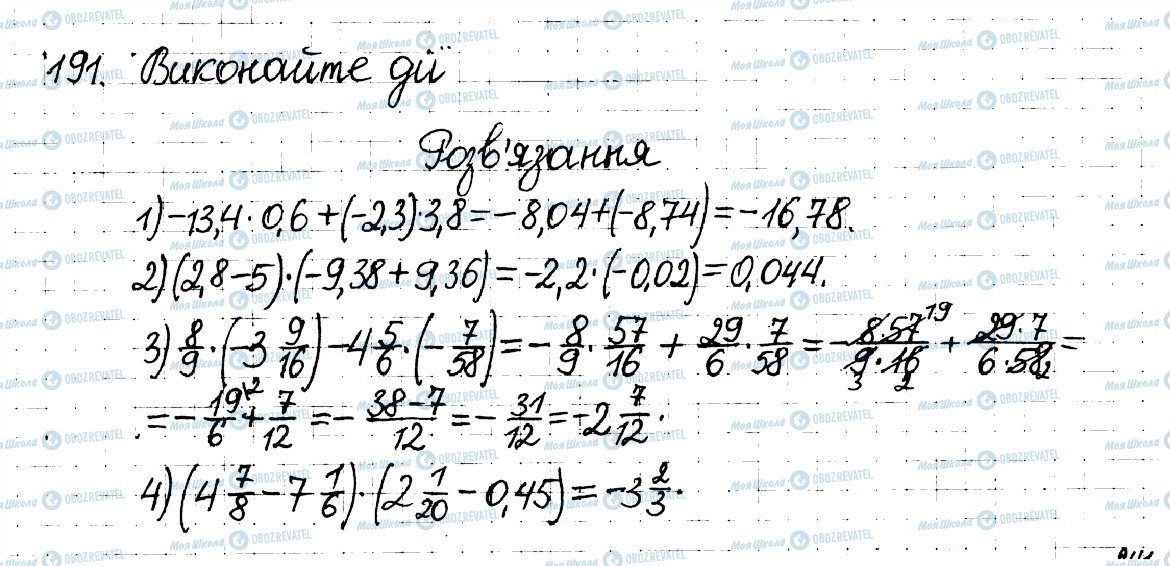 191. Виконайте дії
Розв'язання
1) -13,4 · 0,6 + (-2,3) · 3,8 = -8,04 + (-8,74) = -16,78.
2) (2,8 - 5) · (-9,38 + 9,36) = -2,2 · (-0,02) = 0,044.
3) 8/9 · (-3 9/16) - 4 5/6 · (-7/58) = -8/9 · 57/16 + 29/6 · 7/58 = -(8 · 57 19)/(9 3 · 16 2) + (29 · 7)/(6 · 58 2) =
= -19/6 \2 + 7/12 = -(38 - 7)/12 = -31/12 = -2 7/12.
4) (4 7/8 - 7 1/6) · (2 1/20 - 0,45) = -3 2/3.